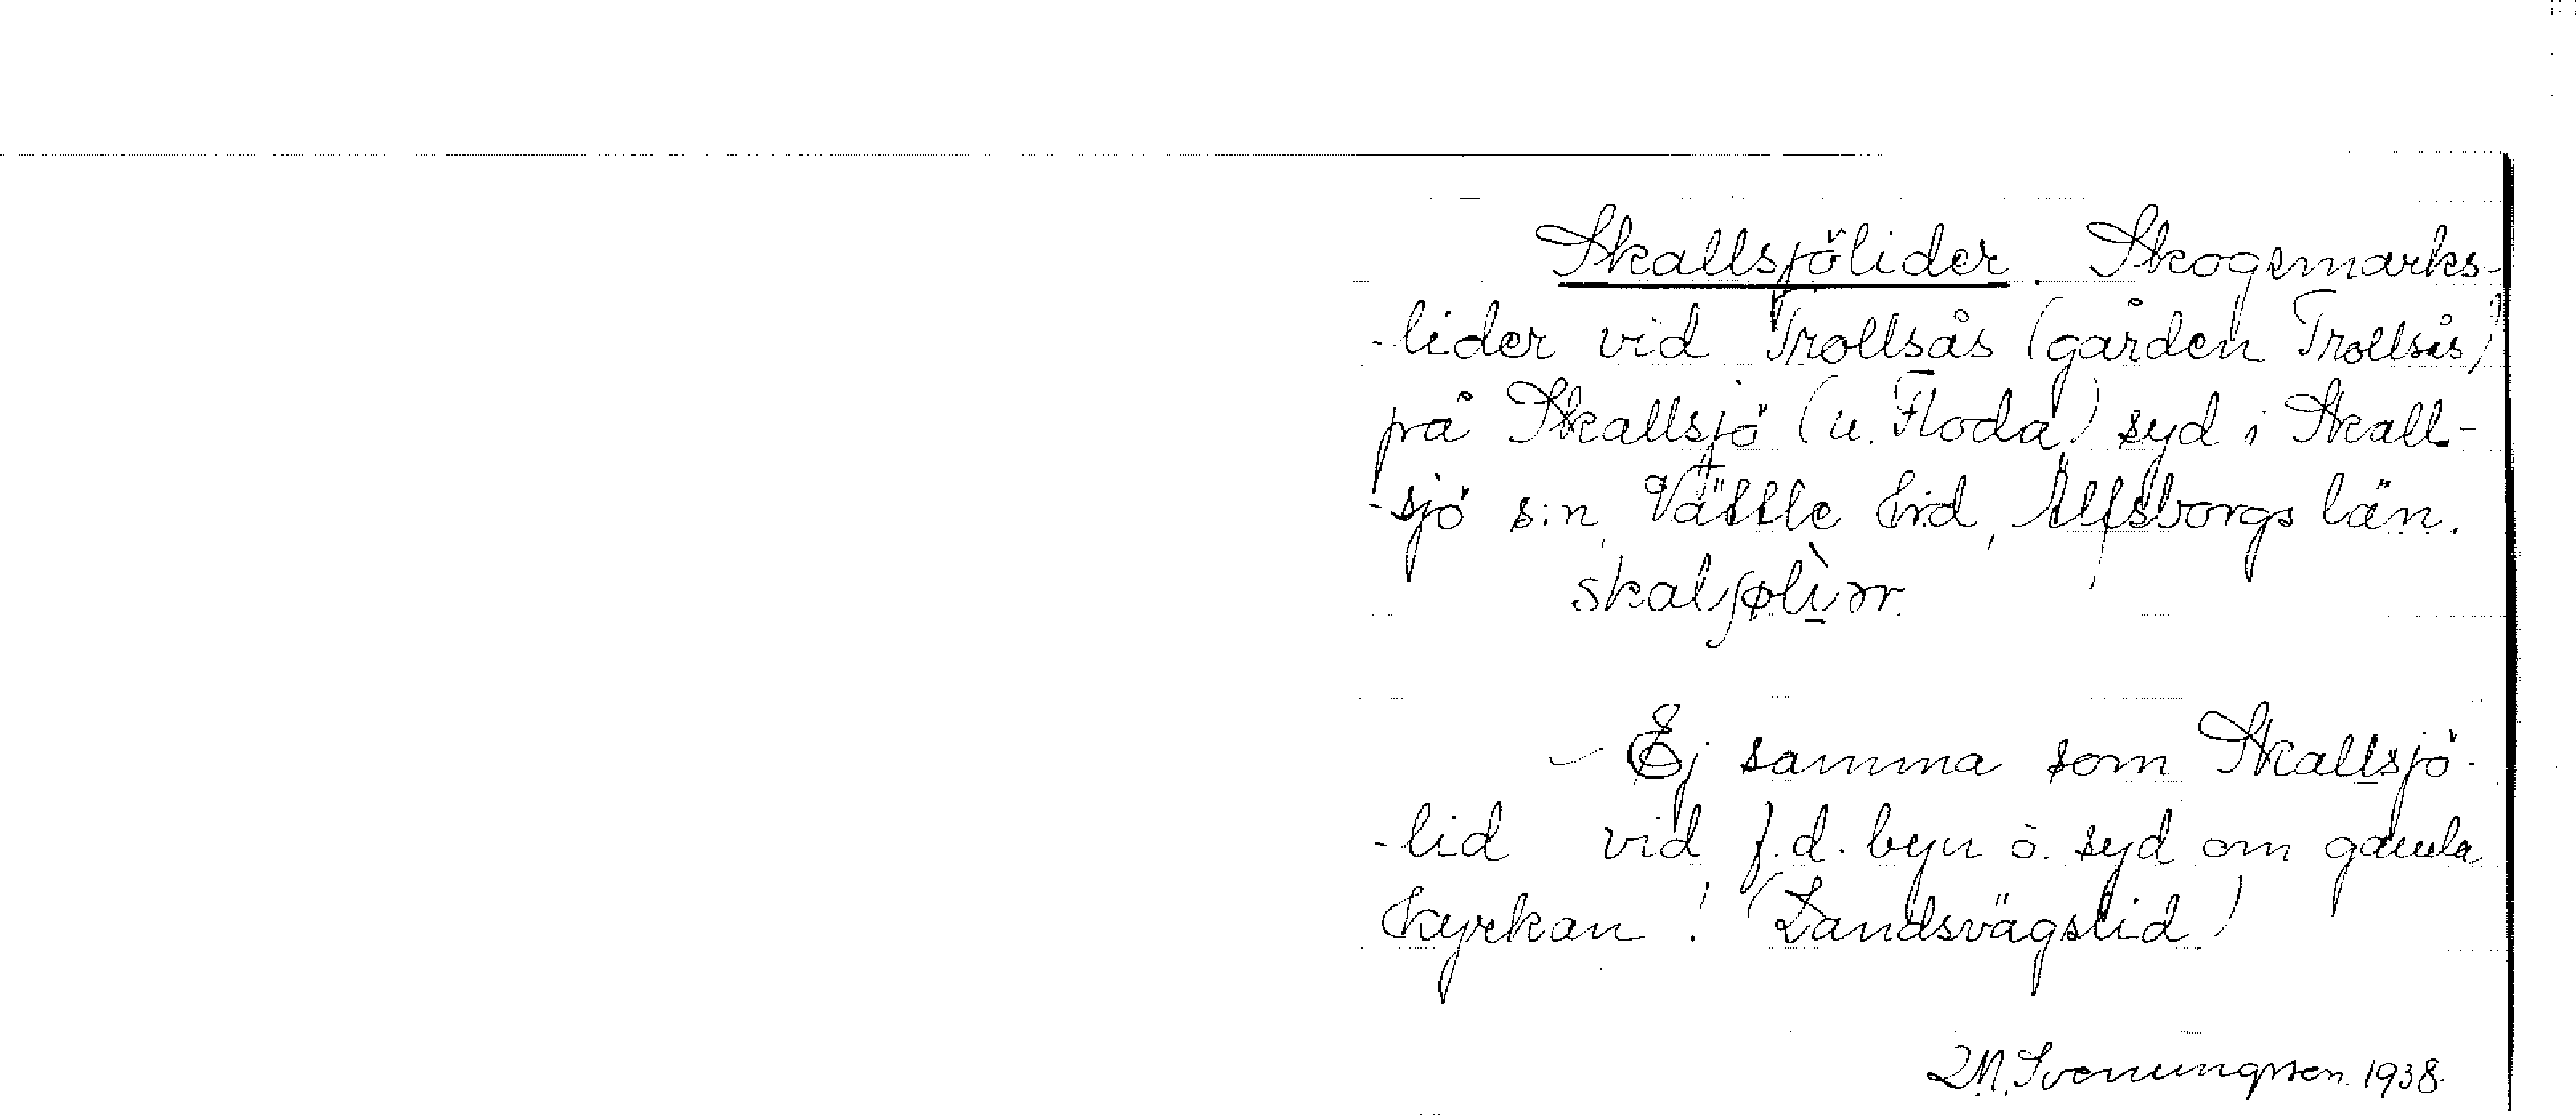 Skallsjölider. Skogsmarks-
-lider vid Trollsås (gården Trollsås)
på Skallsjö (u. Floda) syd i Skall-
-sjö s:n, Vättle hrd, Älfsborgs län.
skalʃøl̲ìər.
- Ej samma som Skallsjö-
-lid vid f.d. byn ö. syd om gamla
kyrkan! (Landsvägslid)
M. Svenungsson 1938.